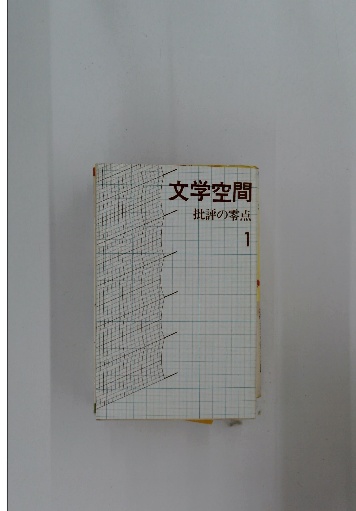 文学空間
批評の零点
1